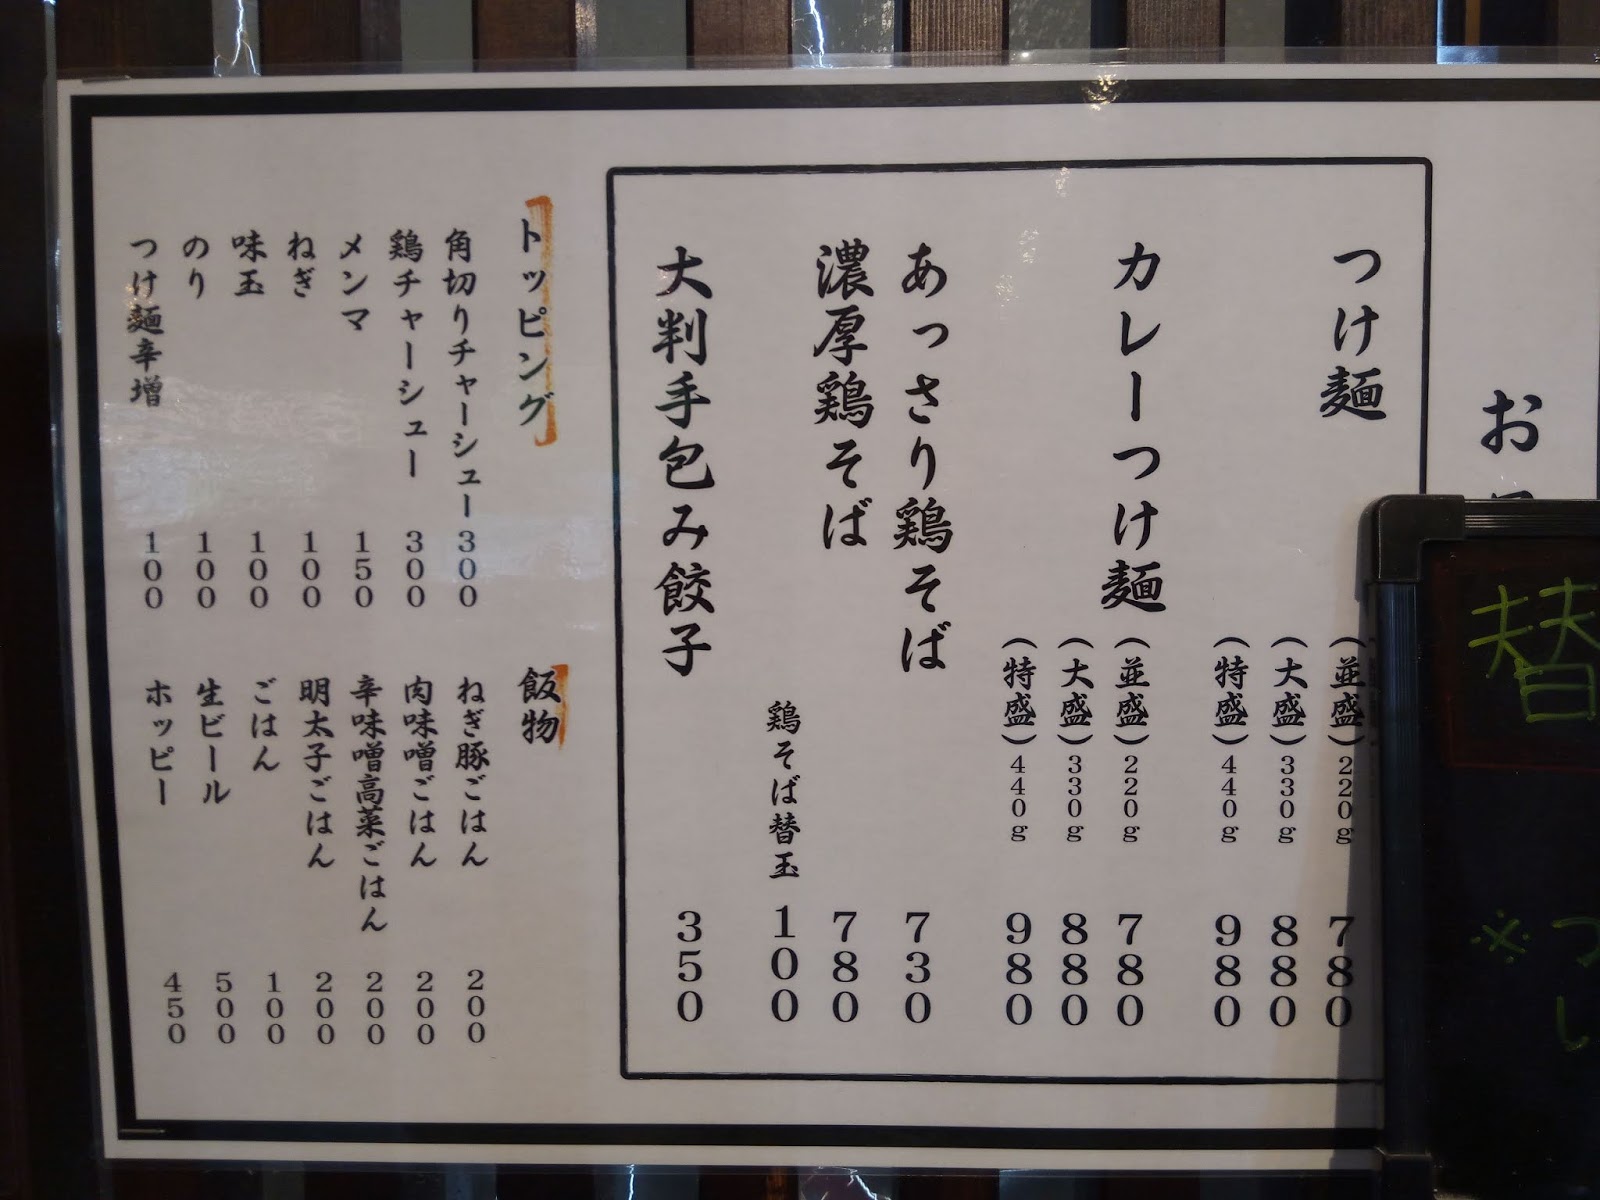 お
つけ麺
(並盛)220g 780
(大盛)330g 880
(特盛)440g 980
カレーつけ麺
(並盛)220g 780
(大盛)330g 880
(特盛)440g 980
あっさり鶏そば 730
濃厚鶏そば 780
鶏そば替玉 100
大判手包み餃子 350
トッピング
角切りチャーシュー 300
鶏チャーシュー 300
メンマ 150
ねぎ 100
味玉 100
のり 100
つけ麺辛増 100
飯物
ねぎ豚ごはん 200
肉味噌ごはん 200
辛味噌高菜ごはん 200
明太子ごはん 200
ごはん 100
生ビール 500
ホッピー 450
替
※つ
し